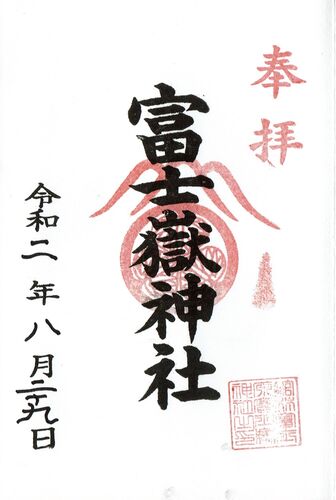 奉拝
富士嶽神社
令和二年八月二十九日